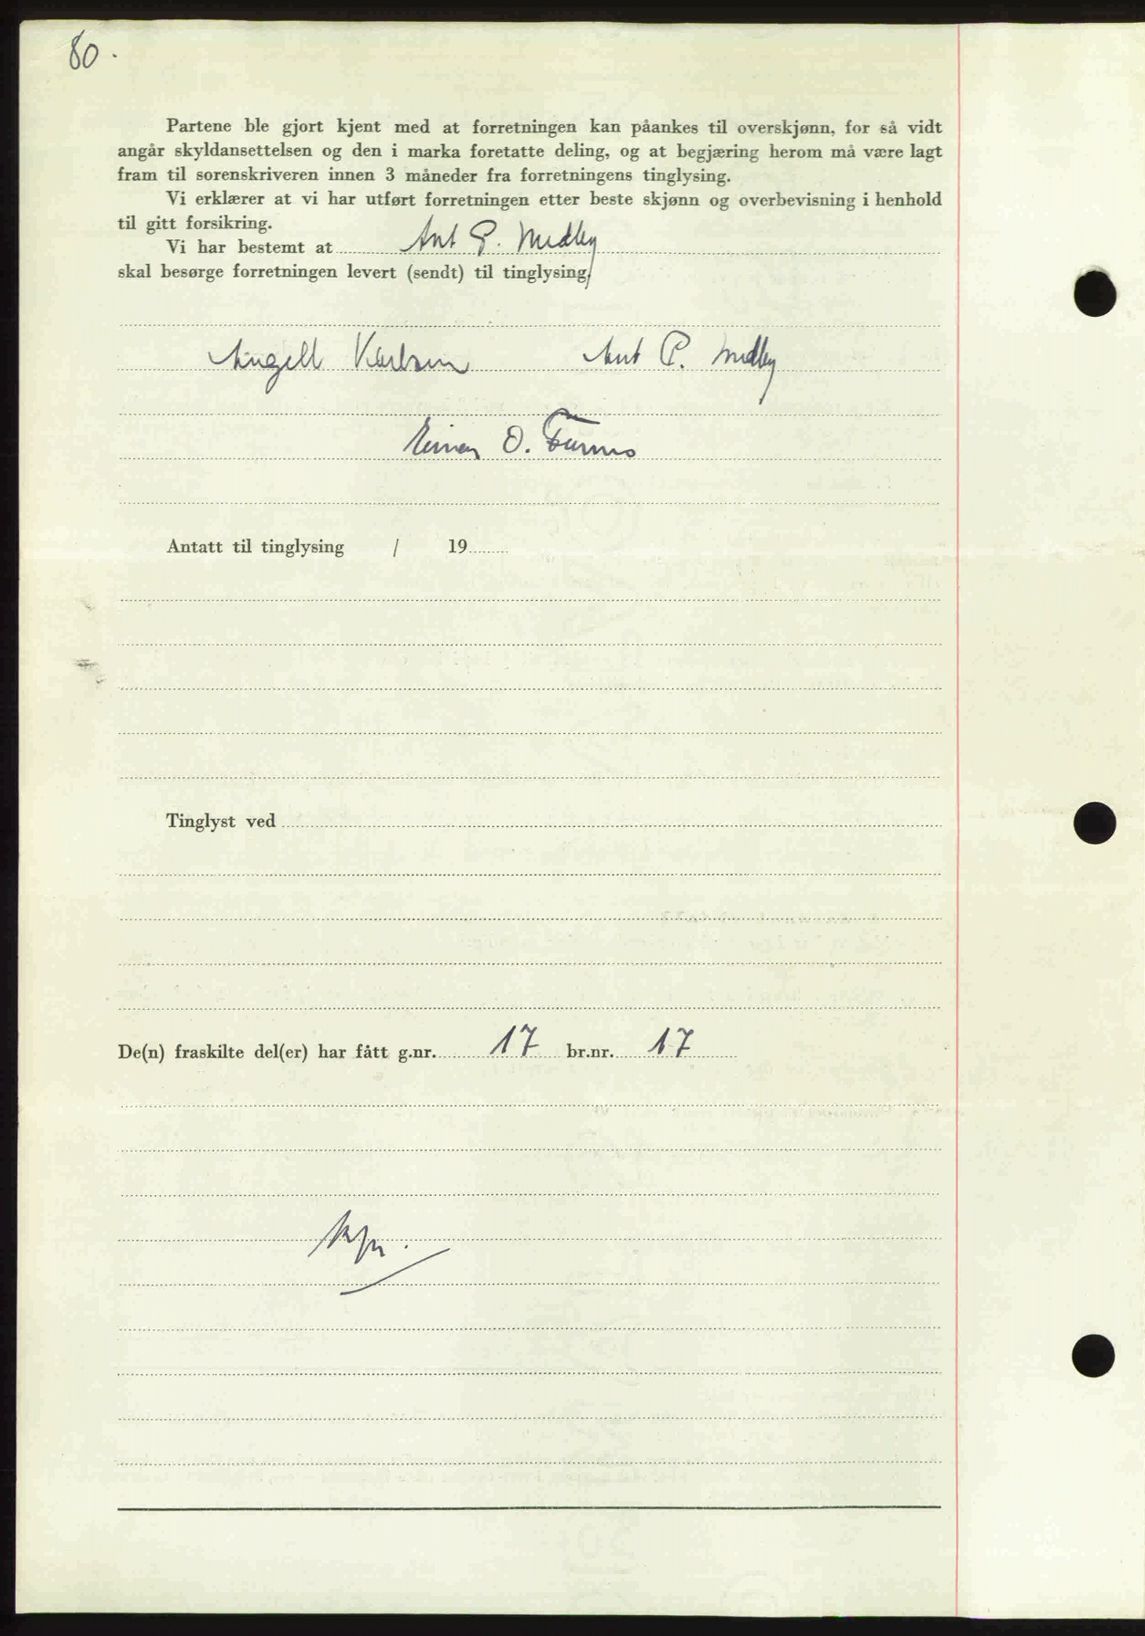 80.
Partene ble gjort kjent med at forretningen kan påankes til overskjønn, for så vidt
angår skyldansettelsen og den i marka foretatte deling, og at begjæring herom må være lagt
fram til sorenskriveren innen 3 måneder fra forretningens tinglysing.
Vi erklærer at vi har utført forretningen etter beste skjønn og overbevisning i henhold
til gitt forsikring.
Vi har bestemt at Ant P. Medby
skal besørge forretningen levert (sendt) til tinglysing.
Angell Karlsen Ant P. Medby
Einar O. Furmo
Antatt til tinglysing / 19
Tinglyst ved
De(n) fraskilte del(er) har fått g.nr. 17 br.nr. 17